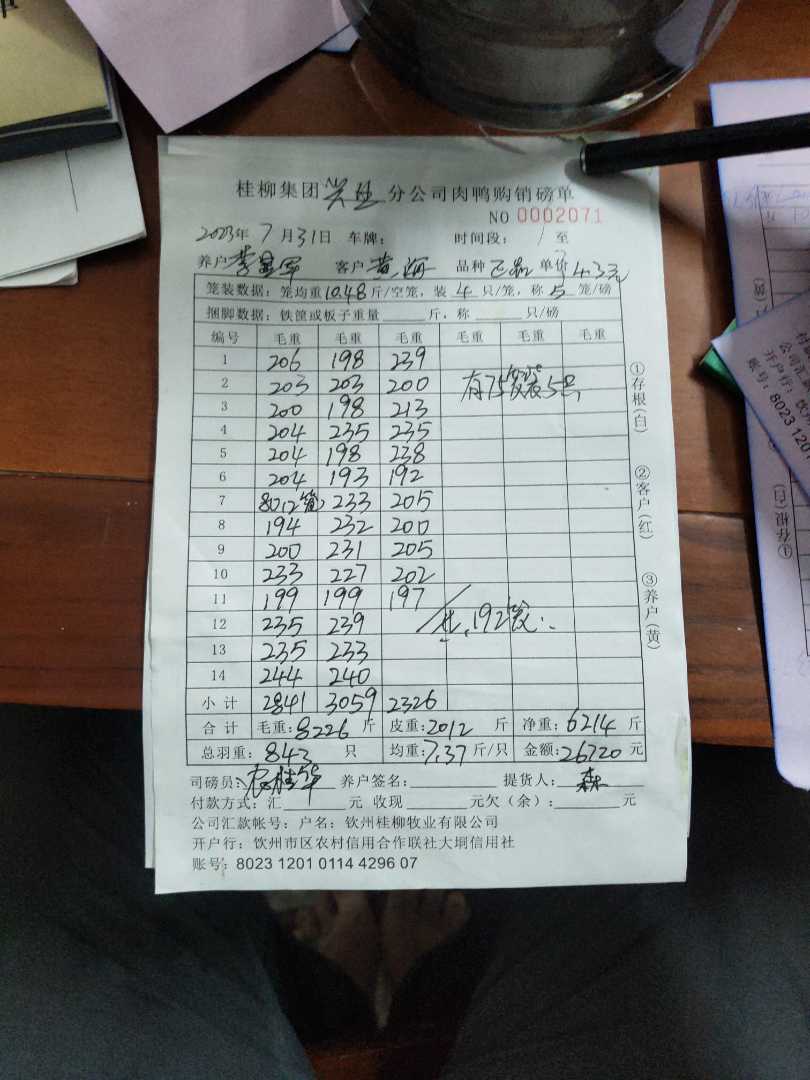 桂柳集团 分公司肉鸭购销磅单
NO 0002071
2023年 7 月 31日 车牌: 时间段: / 至
养户 李 军 客户 黄海 品种 单价 4.3元
笼装数据: 笼均重 10.48 斤/空笼, 装 4 只/笼, 称 5 笼/磅
捆脚数据: 铁筐或板子重量 斤, 称 只/磅
编号 毛重 毛重 毛重 毛重 毛重 毛重
1 206 198 239
2 203 203 200 有75 装5只
3 200 198 213
4 204 235 235
5 204 198 238
6 204 193 192
7 80(2笼) 233 205
8 194 232 200
9 200 231 205
10 233 227 202
11 199 199 197
12 235 239 共,192笼
13 235 233
14 244 240
小计 2841 3059 2326
合计 毛重: 8226 斤 皮重: 2012 斤 净重: 6214 斤
总羽重: 843 只 均重: 7.37 斤/只 金额: 26720 元
司磅员: 养户签名: 提货人: 森
付款方式: 汇 元 收现 元欠(余): 元
公司汇款帐号: 户名: 钦州桂柳牧业有限公司
开户行: 钦州市区农村信用合作联社大垌信用社
账号: 8023 1201 0114 4296 07
①存根(白)
②客户(红)
③养户(黄)
账号: 8023 1201
①存根(白)